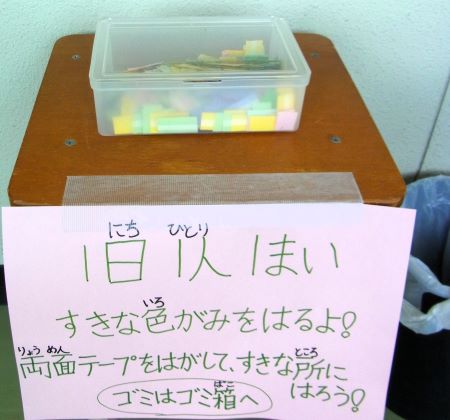 にち ひとり
1日 1人 1まい
いろ
すきな色がみをはるよ!
りょうめん ところ
両面テープをはがして、すきな所に
はろう!
ばこ
ゴミはゴミ箱へ